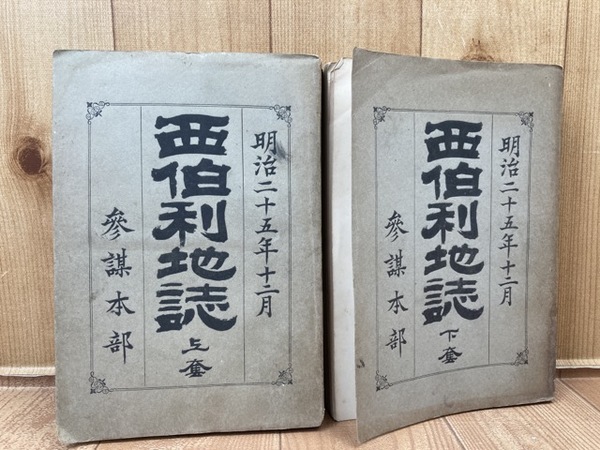 明治二十五年十二月
西伯利地誌 上
參謀本部
明治二十五年十二月
西伯利地誌 下
參謀本部